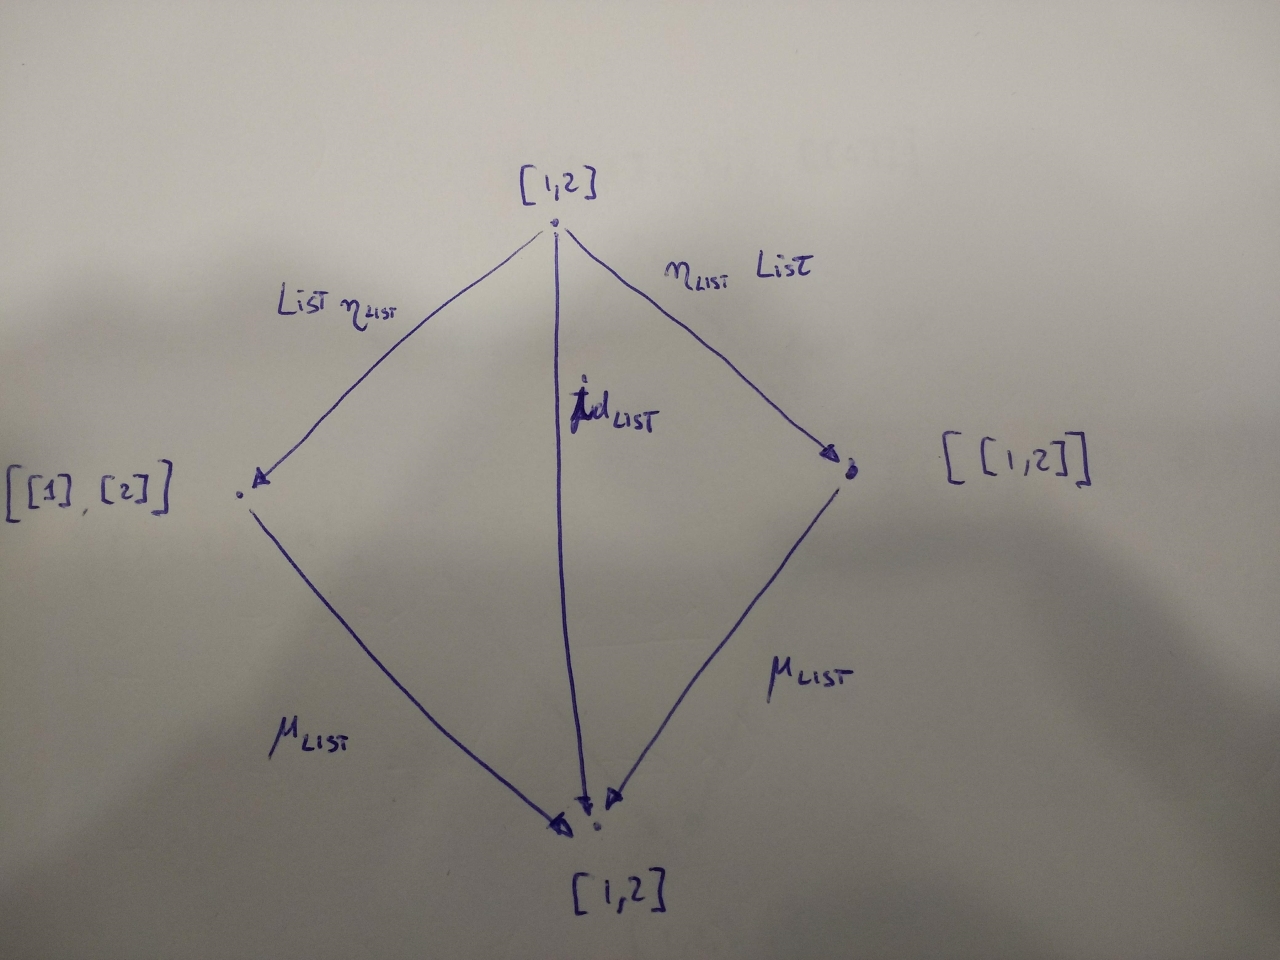 [1,2]
η LIST List
List η LIST
id LIST
[[1,2]]
[[1], [2]]
μ LIST
μ LIST
[1,2]